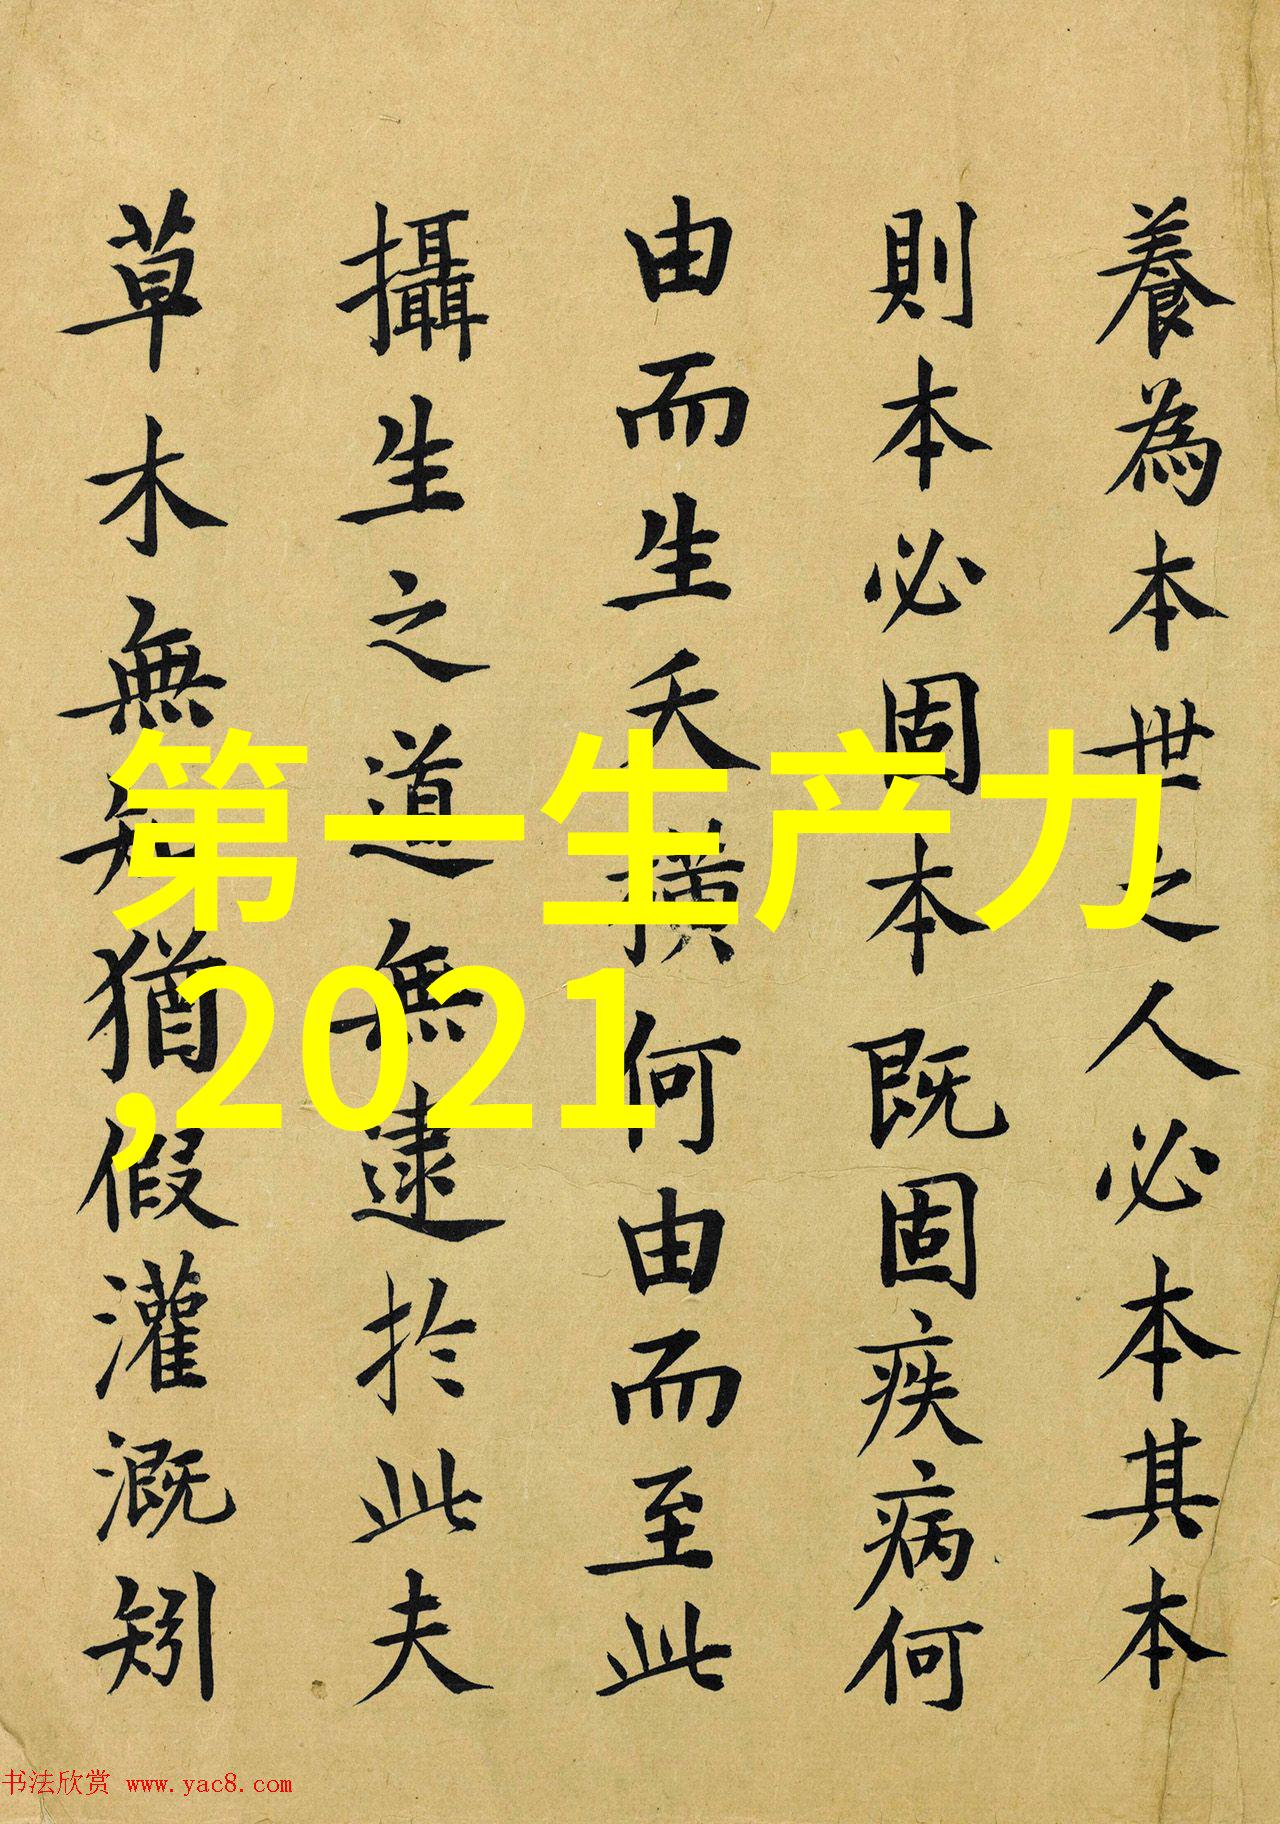 養為本世之人必本其本
則本必固本既固疾病何
由而生夭橫何由而至此
攝生之道無逮於此夫
草木無知猶假灌溉矧
第一生产力
,2021
书法欣赏 www.yac8.com